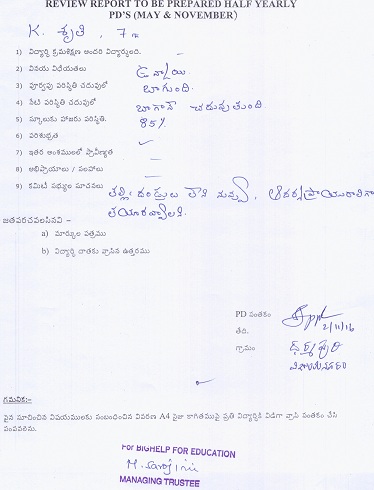 REVIEW REPORT TO BE PREPARED HALF YEARLY
PD'S (MAY & NOVEMBER)
K. శృతి, 7th
1) విద్యార్థి క్రమశిక్షణ అందరి విద్యార్థులది.
2) వినయ విధేయతలు ఉన్నాయి
3) పూర్వపు పరిస్థితి చదువులో బాగుంది.
4) నేటి పరిస్థితి చదువులో బాగానే చదువుతుంది.
5) స్కూలుకు హాజరు పరిస్థితి. 85%
6) పరిశుభ్రత ✓
7) ఇతర అంశములలో ప్రావీణ్యత —
8) అభిప్రాయాలు / సలహాలు —
9) కమిటీ సభ్యుల సూచనలు తల్లి దండ్రులు
తయారవ్వాలి.
జతపరచవలసినవి :-
a) మార్కుల పత్రము
b) విద్యార్థి దాతకు వ్రాసిన ఉత్తరము
PD సంతకం
తేది. 2/11/16
గ్రామం ధర్మపురి
విజయనగరం
గమనిక:-
పైన సూచించిన విషయములకు సంబంధించిన వివరణ A4 సైజు కాగితముపై ప్రతి విద్యార్థికి విడిగా వ్రాసి సంతకం చేసి
పంపవలెను.
For BIGHELP FOR EDUCATION
M. Sarojini
MANAGING TRUSTEE